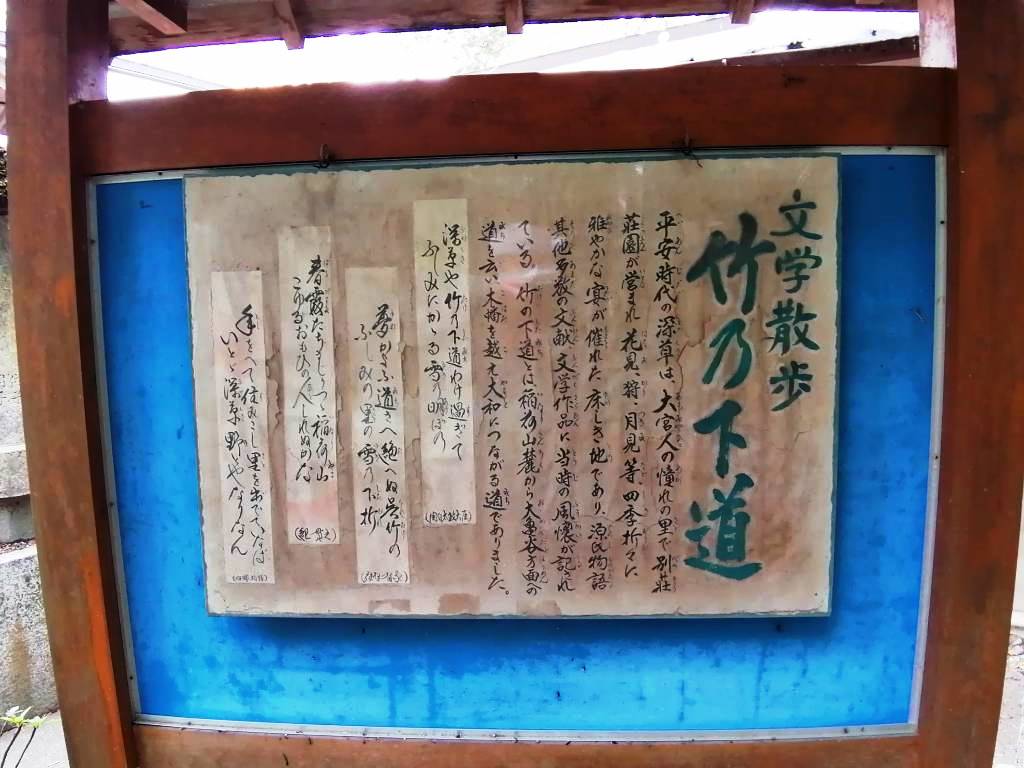 文学散歩
竹乃下道
平安時代の深草は、大宮人の憧れの里で別荘
荘園が営まれ 花見、狩、月見、等、四季折々に
雅やかな宴が催れた床しき地であり、源氏物語
其他多数の文献、文学作品に当時の風懐が記され
ている。竹の下道とは稲荷山麓から大亀谷方面への
道を云い木幡を越え大和につながる道でありました。
深草や竹の下道わけ過ぎて
ふしみにかかる雪の明ぼの
夢かよふ道さへ絶へぬ呉竹の
ふしみの里の雪の下折
春霞たちましりつつ稲荷山
こゆるおもひの人しれぬかな
年をへて住みこし里を出でていなば
いとど深草野やなりなん